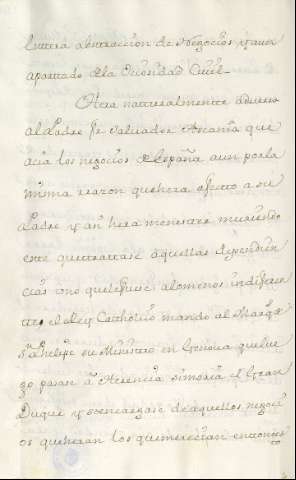 entera abstraccion de Negocios y aun
apartado de la Ociosidad Civil-
Otra naturalmente adverso
al Padre fr Salvador Ascanio que
acia los negocios de España aun por la
misma razon que hera afecto a su
Padre y an hera menester muriendo
este que entrase aquellas dependen
cias uno que le fuese alomenos indiferen
te; el Rey Catholico mando al Marqs
Phelipe su Ministro en Genova que lue
go pasase á Florencia si moria el Gran
Duque y se encargase de aquellos negoci
os que heran los que merecian entonces